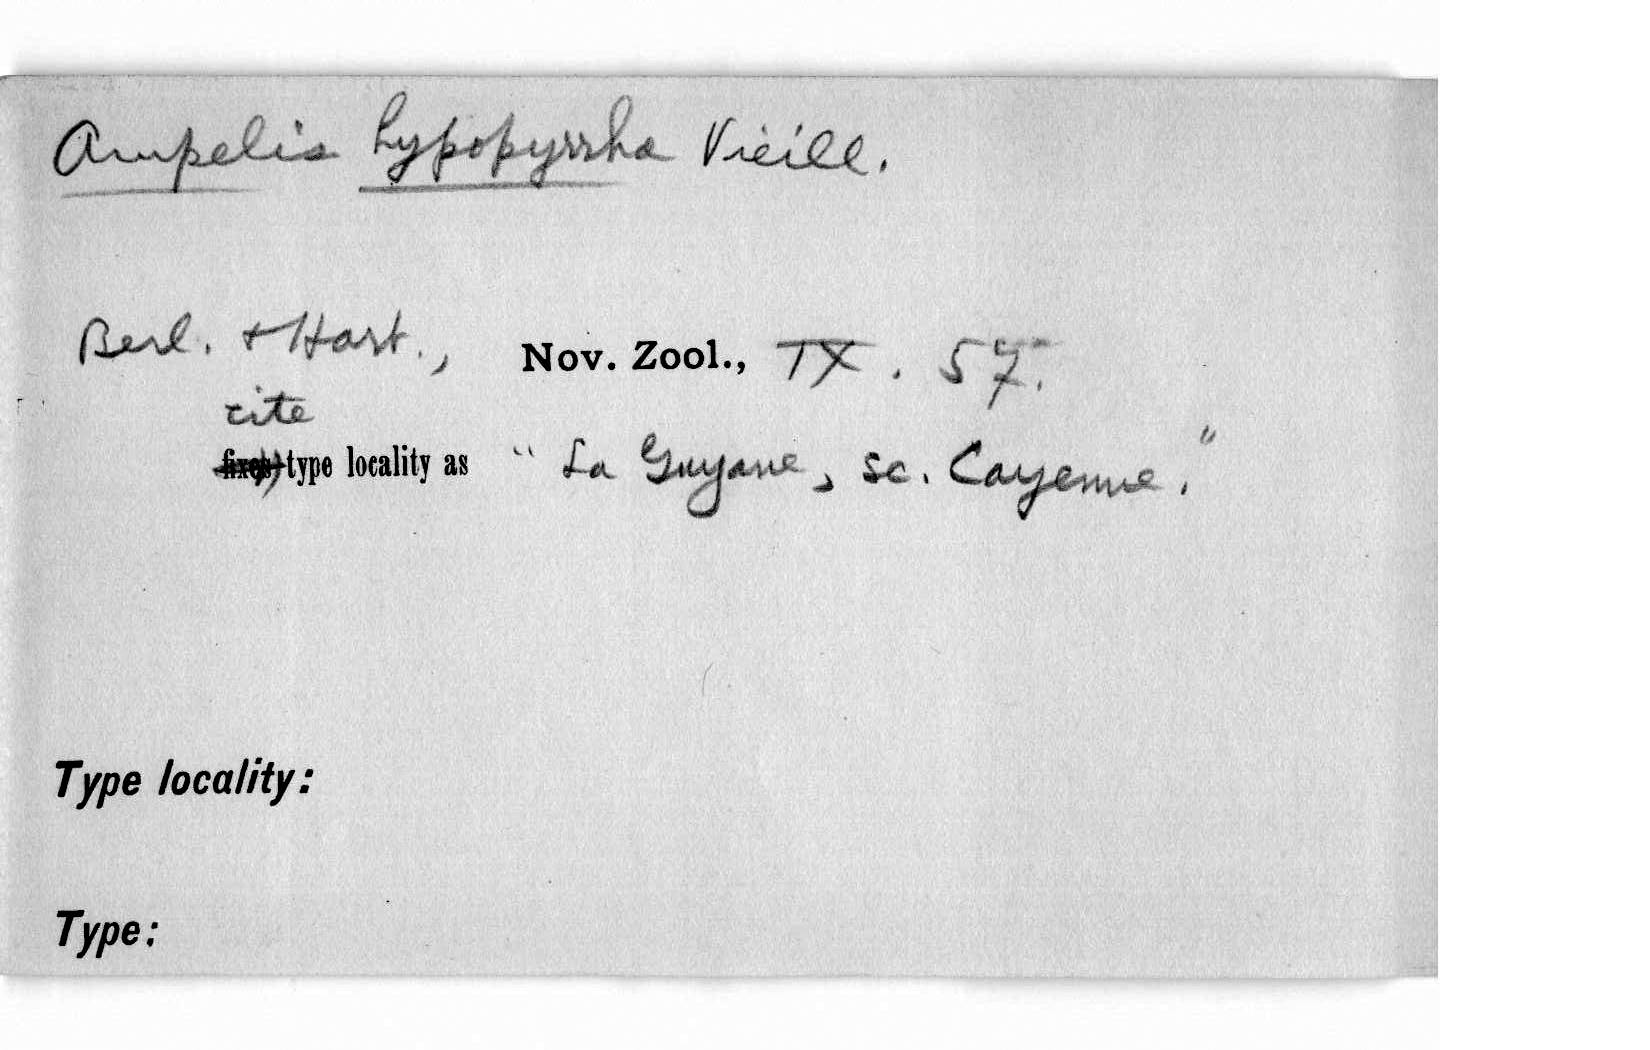 Ampelis hypopyrrha Vieill.
Berl. + Hart., Nov. Zool., IX. 57.
cite
fixes type locality as "La Guyane, sc. Cayenne."
Type locality:
Type: